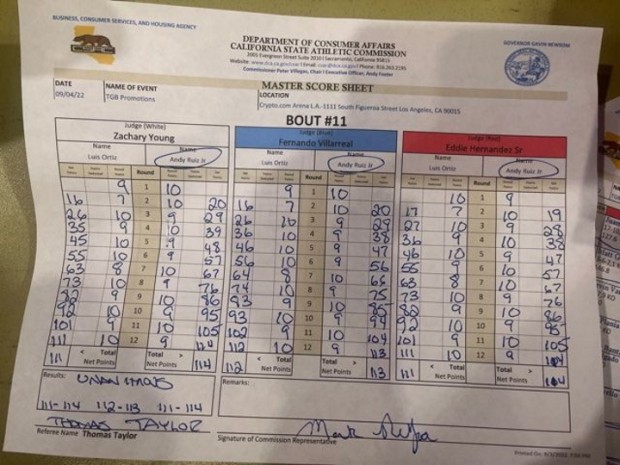 BUSINESS, CONSUMER SERVICES, AND HOUSING AGENCY
GOVERNOR GAVIN NEWSOM
DEPARTMENT OF CONSUMER AFFAIRS
CALIFORNIA STATE ATHLETIC COMMISSION
2005 Evergreen Street Suite 2010 | Sacramento, California 95815
MASTER SCORE SHEET
DATE NAME OF EVENT LOCATION
09/04/22 TGB Promotions Crypto.com Arena L.A.-1111 South Figueroa Street Los Angeles, CA 90015
BOUT #11
Judge (White) Judge (Blue) Judge (Red)
Zachary Young Fernando Villarreal Eddie Hernandez Sr
Name Name Name Name Name Name
Luis Ortiz Andy Ruiz Jr Luis Ortiz Andy Ruiz Jr Luis Ortiz Andy Ruiz Jr
Round Round Round
9 1 10 9 1 10 10 1 9
16 7 2 10 20 16 7 2 10 20 17 7 2 10 19
26 10 3 9 29 26 10 3 9 29 27 10 3 9 28
35 9 4 10 39 36 10 4 9 38 36 9 4 10 38
45 10 5 9 48 46 10 5 9 47 46 10 5 9 47
55 10 6 9 57 56 10 6 9 56 55 9 6 10 57
63 8 7 10 67 64 8 7 10 66 63 8 7 10 67
73 10 8 9 76 74 10 8 9 75 73 10 8 9 76
82 9 9 10 86 9 9 10 82 9 9 10 86
92 10 10 9 95 93 9 10 10 92 10 10 9 95
101 9 11 10 105 102 9 11 10 104 101 9 11 10 105
111 10 12 9 112 10 12 9 113 111 10 12 9
111 < Total Net Points Total > Net Points 114 112 < Total Net Points Total > Net Points 113 111 < Total Net Points Total > Net Points
Results: UNANIMOUS Remarks:
111-114 112-113 111-114
THOMAS TAYLOR
Referee Name Thomas Taylor Signature of Commission Representative